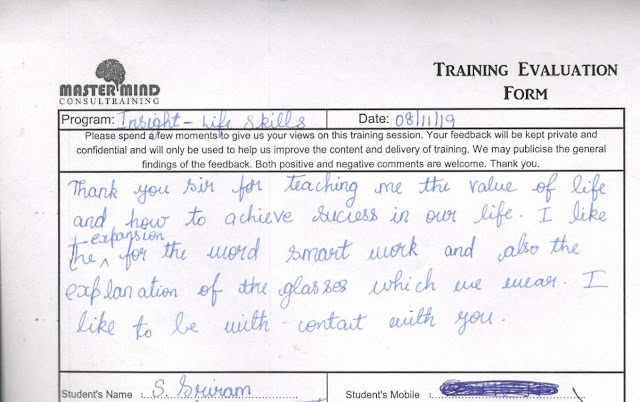 MASTER MIND
CONSULTRAINING
TRAINING EVALUATION
FORM
Program: Insight - Life Skills Date: 08/11/19
Please spend a few moments to give us your views on this training session. Your feedback will be kept private and
confidential and will only be used to help us improve the content and delivery of training. We may publicise the general
findings of the feedback. Both positive and negative comments are welcome. Thank you.
Thank you sir for teaching me the value of life
and how to achieve success in our life. I like
the expansion for the word smart work and also the
explanation of the glasses which we wear. I
like to be with - contact with you.
Student's Name : S. Sriram Student's Mobile :